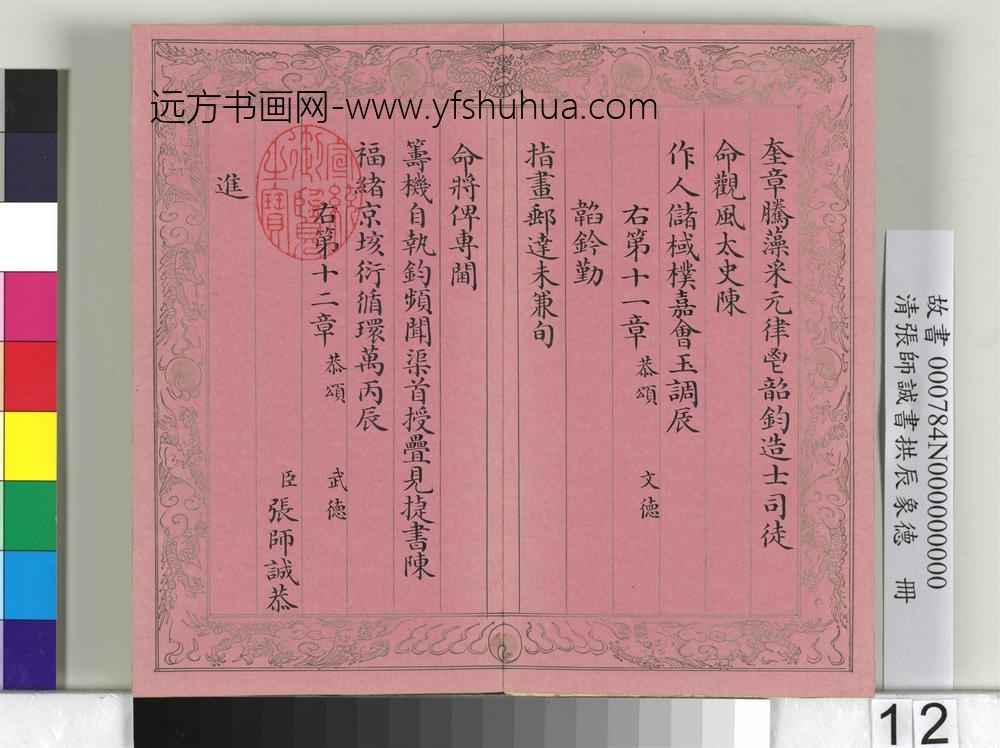 远方书画网-www.yfshuhua.com
奎章騰藻采元律鬯韶鈞造士司徒
命觀風太史陳
作人儲棫樸嘉會玉調辰
右第十一章 恭頌 文德
韜鈐勤
指畫郵達未兼旬
命將俾專閫
籌機自執鈞頻聞渠首授疊見捷書陳
福緒京垓衍循環萬丙辰
右第十二章 恭頌 武德
臣張師誠恭
進
宣統御覽之寶
故書 000784N000000000
清張師誠書拱辰象德 冊
12